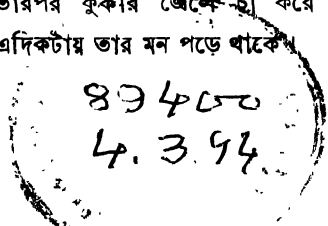 তারপর কুকার জ্বেলে চা করে
এদিকটায় তার মন পড়ে থাকে।
89400
4.3.94